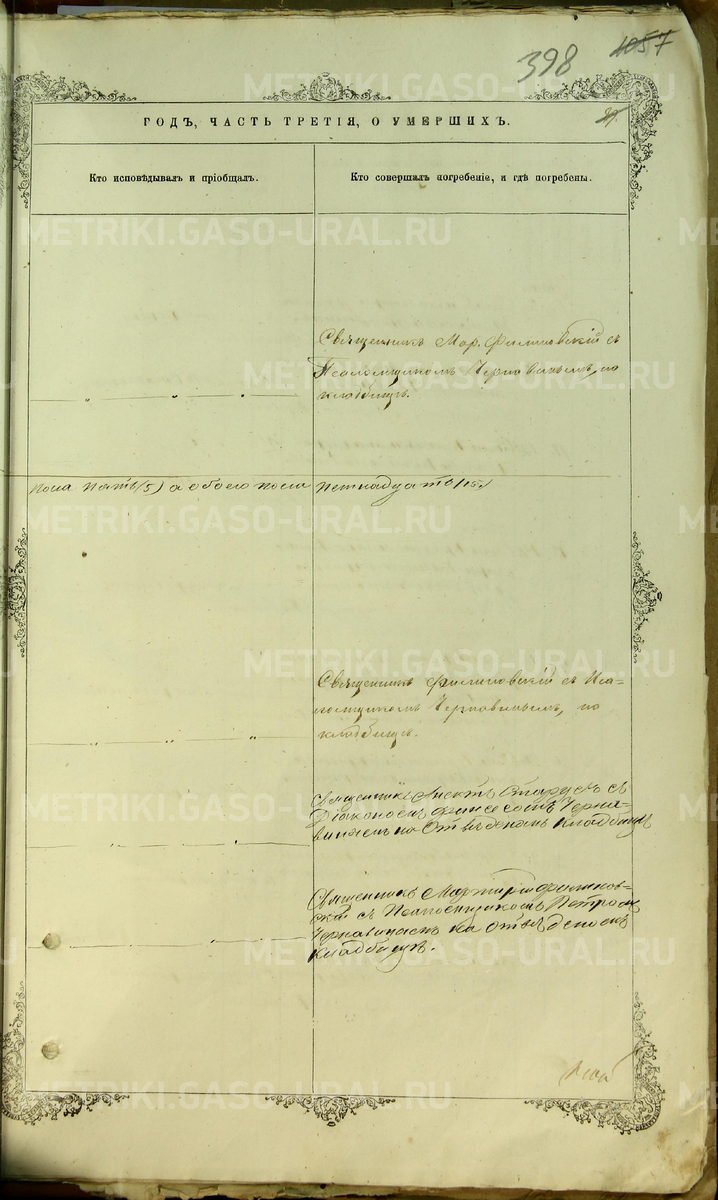 398 1057
ГОДЪ, ЧАСТЬ ТРЕТІЯ, О УМЕРШИХЪ.
Кто исповѣдывалъ и пріобщалъ.
Кто совершалъ погребеніе, и гдѣ погребены.
Священникъ Мар. Филиновскій съ
Псаломщикомъ Чернавинымъ, на
кладбищѣ.
пола пять (5) а обоего пола пятнадцать (15)
Священникъ Филиновскій съ Пса-
ломщикомъ Чернавинымъ, на
кладбищѣ.
Священникъ съ
Діакономъ Черна-
винымъ на Отведеномъ Кладбищѣ
Священникъ Мартирій Филинов-
скій съ Псаломщикомъ Петромъ
Чернавинымъ на отведеномъ
кладбищѣ.
METRIKI.GASO-URAL.RU